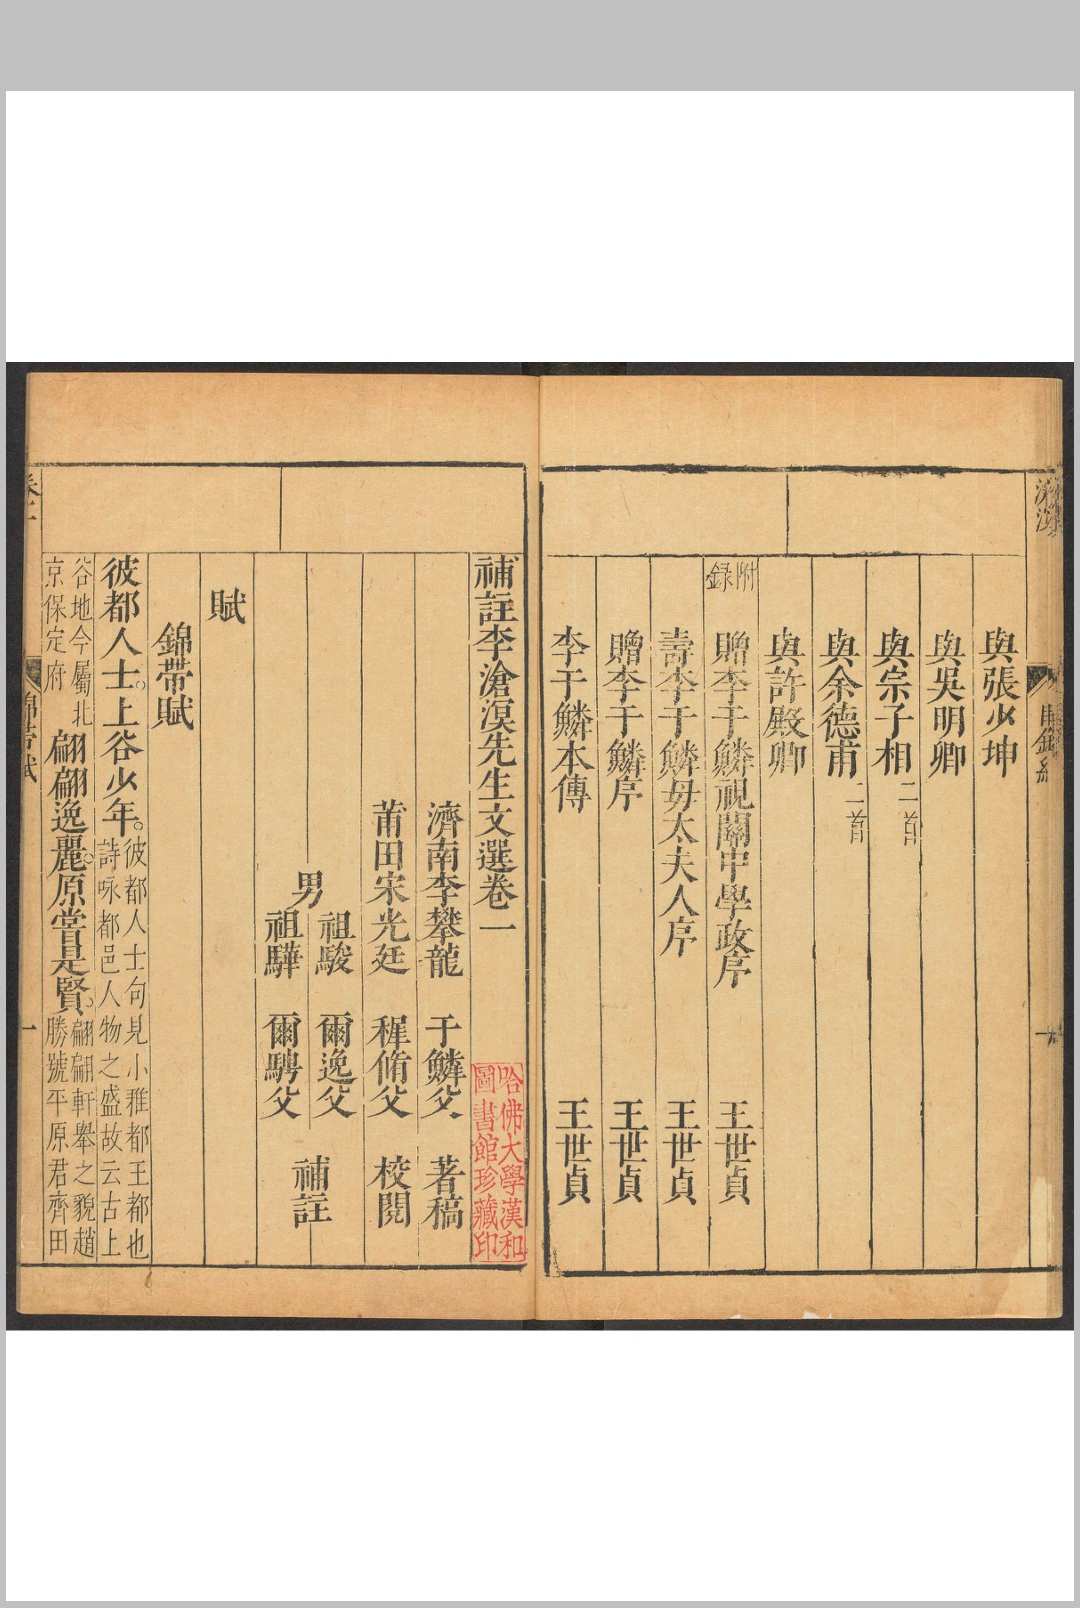 與張少坤
與吳明卿
與宗子相 二首
與余德甫 二首
與許殿卿
附錄
贈李于鱗視關中學政序 王世貞
壽李于鱗母太夫人序 王世貞
贈李于鱗序 王世貞
李于鱗本傳 王世貞
補註李滄溟先生文選卷一
濟南李攀龍 于鱗父 著稿
莆田宋光廷 穉脩父 校閱
男 祖駿 爾逸父
祖驊 爾騁父 補註
賦
錦帶賦
彼都人士。上谷少年。彼都人士句見小雅都王都也
詩咏都邑人物之盛故云古上
谷地今屬北
京保定府 翩翩逸麗。原嘗是賢。翩翩軒舉之貌趙
勝號平原君齊田
錦帶賦
一
哈佛大學漢和
圖書館珍藏印